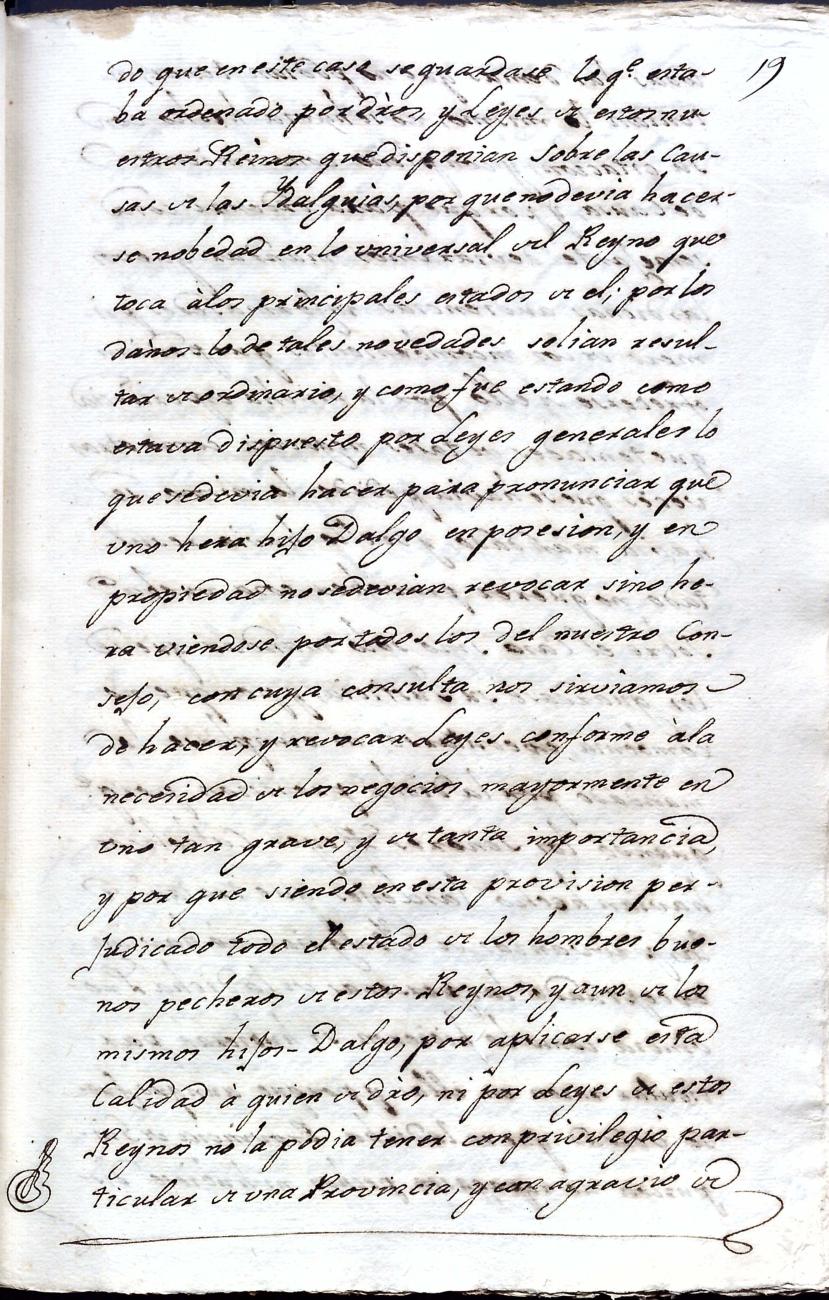 19
do que en este caso se guardase lo q.e esta-
ba ordenado por dros, y Leyes de estos nu-
estros Reinos que disponian sobre las Cau-
sas de las Ydalguias, por que no devia hacer-
se nobedad en lo vniversal del Reyno que
toca à los principales estados de el; por los
daños lo de tales novedades solian resul-
tar de ordinario, y como fue estando como
estava dispuesto por Leyes generales lo
que se devia hacer para pronunciar que
vno hera hijo Dalgo en posesion, y en
propiedad no se devian revocar sino he-
ra viendose por todos los del nuestro Con-
sejo, con cuya consulta nos sirviamos
de hacer, y revocar Leyes conforme à la
necesidad de los negocios mayormente en
vno tan grave, y de tanta importancia,
y por que siendo en esta provision per-
judicado todo el estado de los hombres bue-
nos pecheros de estos Reynos, y aun de los
mismos hijos-Dalgo, por aplicarse esta
Calidad à quien de dro, ni por Leyes de estos
Reynos no la podia tener con privilegio par-
ticular de vna Provincia, y con agravio de